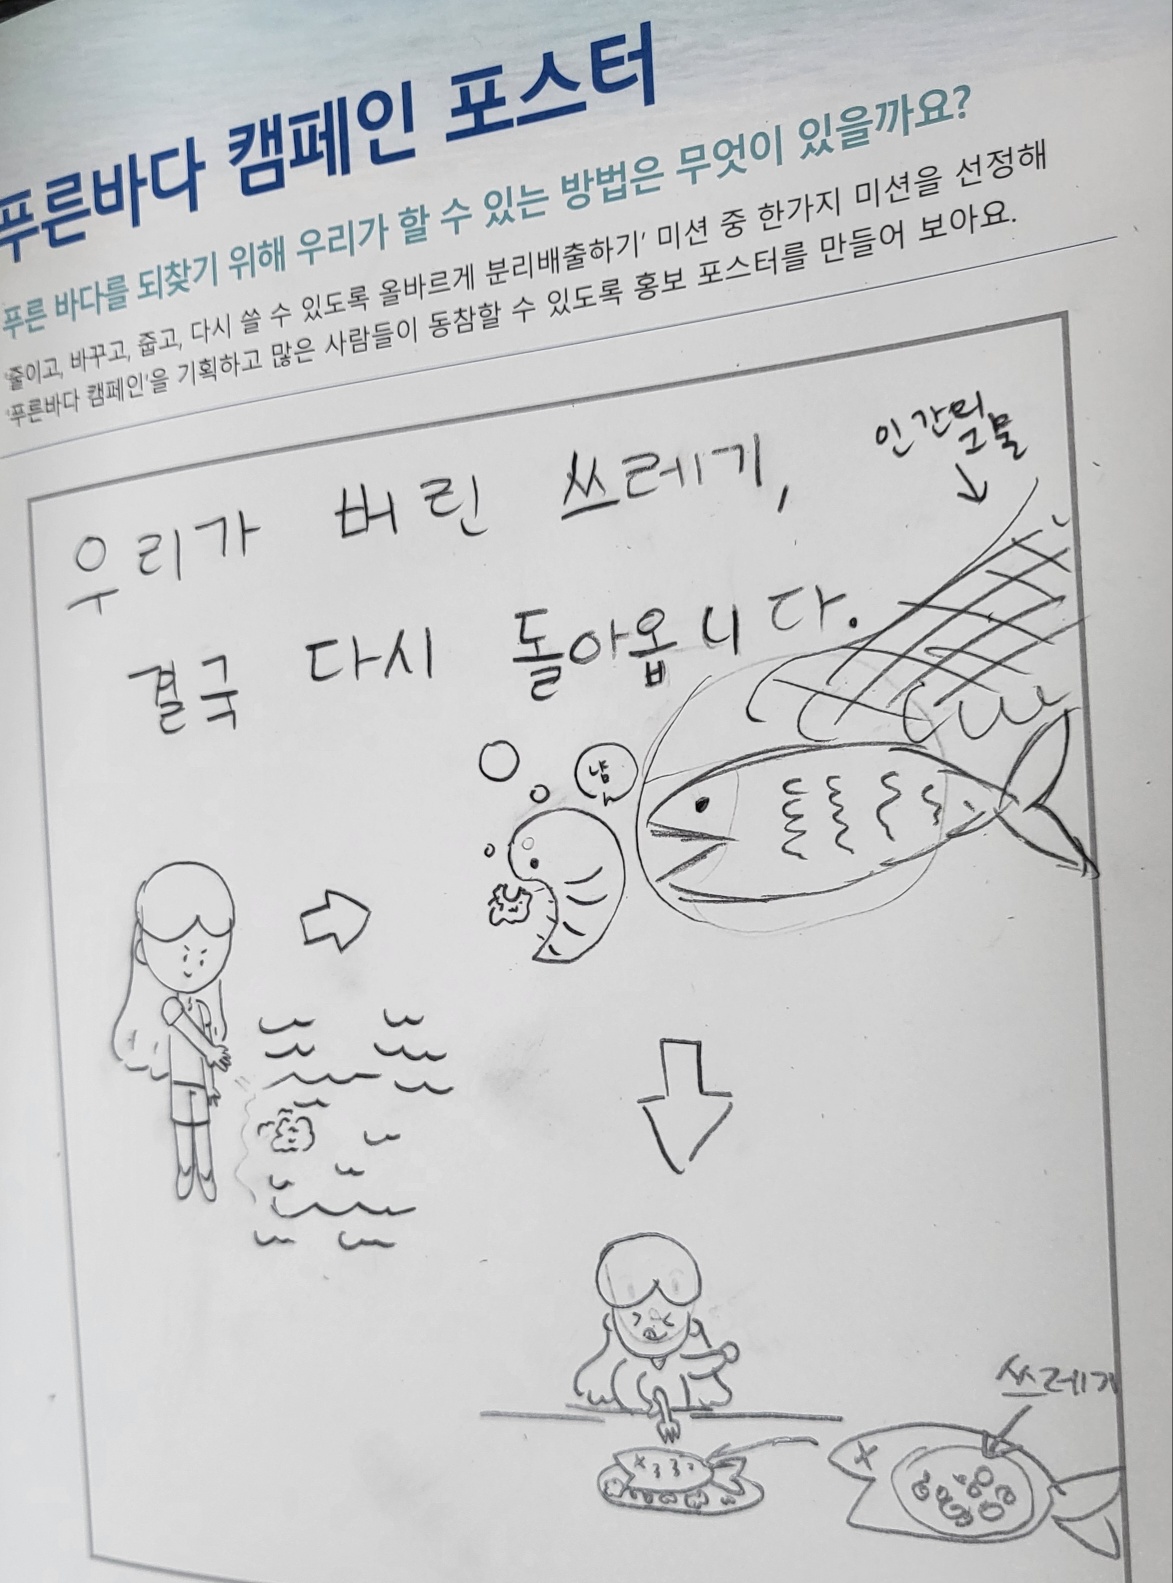 푸른바다 캠페인 포스터
푸른 바다를 되찾기 위해 우리가 할 수 있는 방법은 무엇이 있을까요?
'줄이고, 바꾸고, 줍고, 다시 쓸 수 있도록 올바르게 분리배출하기' 미션 중 한가지 미션을 선정해
'푸른바다 캠페인'을 기획하고 많은 사람들이 동참할 수 있도록 홍보 포스터를 만들어 보아요.
우리가 버린 쓰레기,
인간의
그물
결국 다시 돌아옵니다.
냠
쓰레기